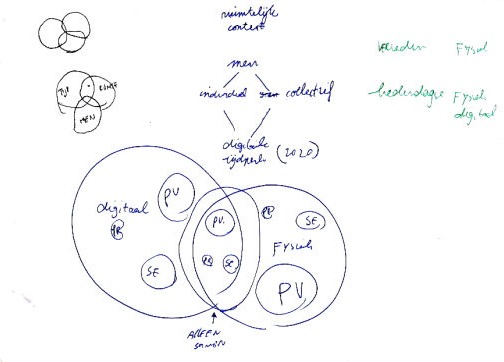 ruimtelijk
context
mens
individu collectief
digitale
tijdperk (2020)
verleden Fysiek
hedendaagse Fysiek
digitaal
TIJD RUIMTE
MENS
digitaal
PV
PR
SE
PV
PR SE
PR
SE
Fysiek
PV
ALLEEN
SAMEN